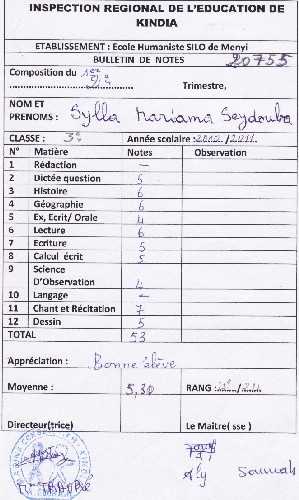 INSPECTION REGIONAL DE L'EDUCATION DE
KINDIA
ETABLISSEMENT : Ecole Humaniste SILO de Menyi
BULLETIN DE NOTES 20755
Composition du 1er
Trimestre,
NOM ET
PRENOMS : Sylla Mariama Seydouba
CLASSE : 3e Année scolaire : 2010 / 2011
N° Matière Notes Observation
1 Rédaction —
2 Dictée question 5
3 Histoire 6
4 Géographie 6
5 Ex, Ecrit/ Orale 4
6 Lecture 6
7 Ecriture 5
8 Calcul écrit 5
9 Science
D'Observation 4
10 Langage —
11 Chant et Récitation 7
12 Dessin 5
TOTAL 53
Appréciation : Bonne élève
Moyenne : 5,30 RANG :
Directeur(trice) Le Maitre( sse )
Aly Soumah